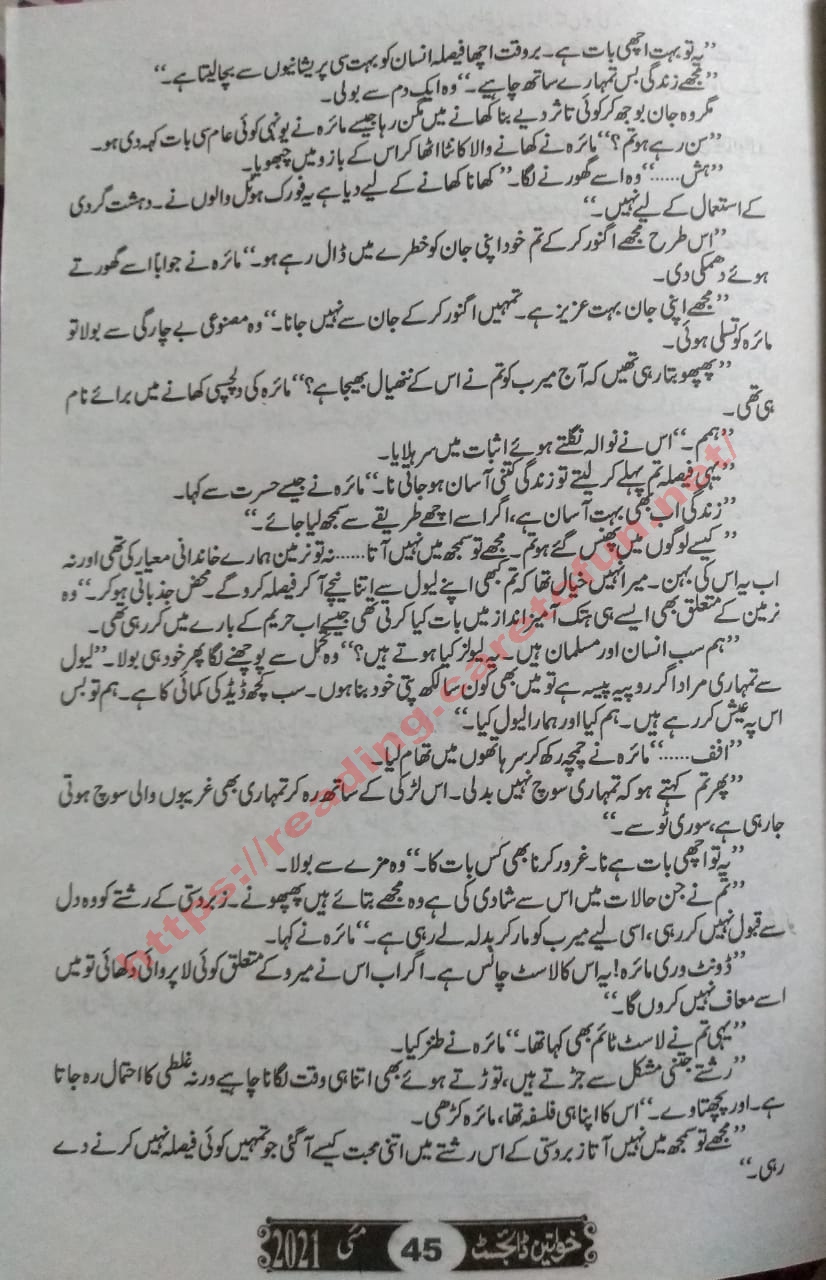 ”یہ تو بہت اچھی بات ہے۔ بروقت اچھا فیصلہ انسان کو بہت سی پریشانیوں سے بچا لیتا ہے۔“
”مجھے زندگی بس تمہارے ساتھ چاہیے۔“ وہ ایک دم سے بولی۔
مگر وہ جان بوجھ کر کوئی تاثر دیے بنا کھانے میں مگن رہا جیسے مائرہ نے یونہی کوئی عام سی بات کہہ دی ہو۔
”سن رہے ہو تم؟“ مائرہ نے کھانے والا کانٹا اٹھا کر اس کے بازو میں چبھویا۔
”ہش……“ وہ اسے گھورنے لگا۔ ”کھانا کھانے کے لیے دیا ہے یہ فورک ہوٹل والوں نے۔ دہشت گردی
کے استعمال کے لیے نہیں۔“
”اس طرح مجھے اگنور کر کے تم خود اپنی جان کو خطرے میں ڈال رہے ہو۔“ مائرہ نے جواباً اسے گھورتے
ہوئے دھمکی دی۔
”مجھے اپنی جان بہت عزیز ہے۔ تمہیں اگنور کر کے جان سے نہیں جانا۔“ وہ مصنوعی بے چارگی سے بولا تو
مائرہ کو تسلی ہوئی۔
”پھپھو بتا رہی تھیں کہ آج میرب کو تم نے اس کے ننھیال بھیجا ہے؟“ مائرہ کی دلچسپی کھانے میں برائے نام
ہی تھی۔
”ہمم۔“ اس نے نوالہ نگلتے ہوئے اثبات میں سر ہلایا۔
”یہی فیصلہ تم پہلے کر لیتے تو زندگی کتنی آسان ہو جاتی نا۔“ مائرہ نے جیسے حسرت سے کہا۔
”زندگی اب بھی بہت آسان ہے، اگر اسے اچھے طریقے سے سمجھ لیا جائے۔“
”کیسے لوگوں میں پھنس گئے ہو تم۔ مجھے تو سمجھ میں نہیں آتا…… نہ تو نرمین ہمارے خاندانی معیار کی تھی اور نہ
اب یہ اس کی بہن۔ میرا نہیں خیال تھا کہ تم کبھی اپنے لیول سے اتنا نیچے آ کر فیصلہ کرو گے۔ محض جذباتی ہو کر۔“ وہ
نرمین کے متعلق بھی ایسے ہی ہتک آمیز انداز میں بات کیا کرتی تھی جیسے اب حریم کے بارے میں کر رہی تھی۔
”ہم سب انسان اور مسلمان ہیں۔ یہ لیولز کیا ہوتے ہیں؟“ وہ تحمل سے پوچھنے لگا پھر خود ہی بولا۔ ”لیول
سے تمہاری مراد اگر روپیہ پیسہ ہے تو میں بھی کون سا لکھ پتی خود بنا ہوں۔ سب کچھ ڈیڈ کی کمائی کا ہے۔ ہم تو بس
اس پہ عیش کر رہے ہیں۔ ہم کیا اور ہمارا لیول کیا۔“
”افف……“ مائرہ نے چمچہ رکھ کر سر ہاتھوں میں تھام لیا۔
”پھر تم کہتے ہو کہ تمہاری سوچ نہیں بدلی۔ اس لڑکی کے ساتھ رہ کر تمہاری بھی غریبوں والی سوچ ہوتی
جا رہی ہے، سوری ٹو سے۔“
”یہ تو اچھی بات ہے نا۔ غرور کرنا بھی کس بات کا۔“ وہ مزے سے بولا۔
”تم نے جن حالات میں اس سے شادی کی ہے وہ مجھے بتائے ہیں پھپھو نے۔ زبردستی کے رشتے کو وہ دل
سے قبول نہیں کر رہی، اسی لیے میرب کو مار کر بدلہ لے رہی ہے۔“ مائرہ نے کہا۔
”ڈونٹ وری مائرہ! یہ اس کا لاسٹ چانس ہے۔ اگر اب اس نے میرو کے متعلق کوئی لاپروائی دکھائی تو میں
اسے معاف نہیں کروں گا۔“
”یہی تم نے لاسٹ ٹائم بھی کہا تھا۔“ مائرہ نے طنز کیا۔
”رشتے جتنی مشکل سے جڑتے ہیں، توڑتے ہوئے بھی اتنا ہی وقت لگانا چاہیے ورنہ غلطی کا احتمال رہ جاتا
ہے۔ اور پچھتاوے۔“ اس کا اپنا ہی فلسفہ تھا، مائرہ کڑھی۔
”مجھے تو سمجھ میں نہیں آتا زبردستی کے اس رشتے میں اتنی محبت کیسے آ گئی جو تمہیں کوئی فیصلہ نہیں کرنے دے
رہی۔“
خواتین ڈائجسٹ 45 مئی 2021
https://reading.caretofun.net/